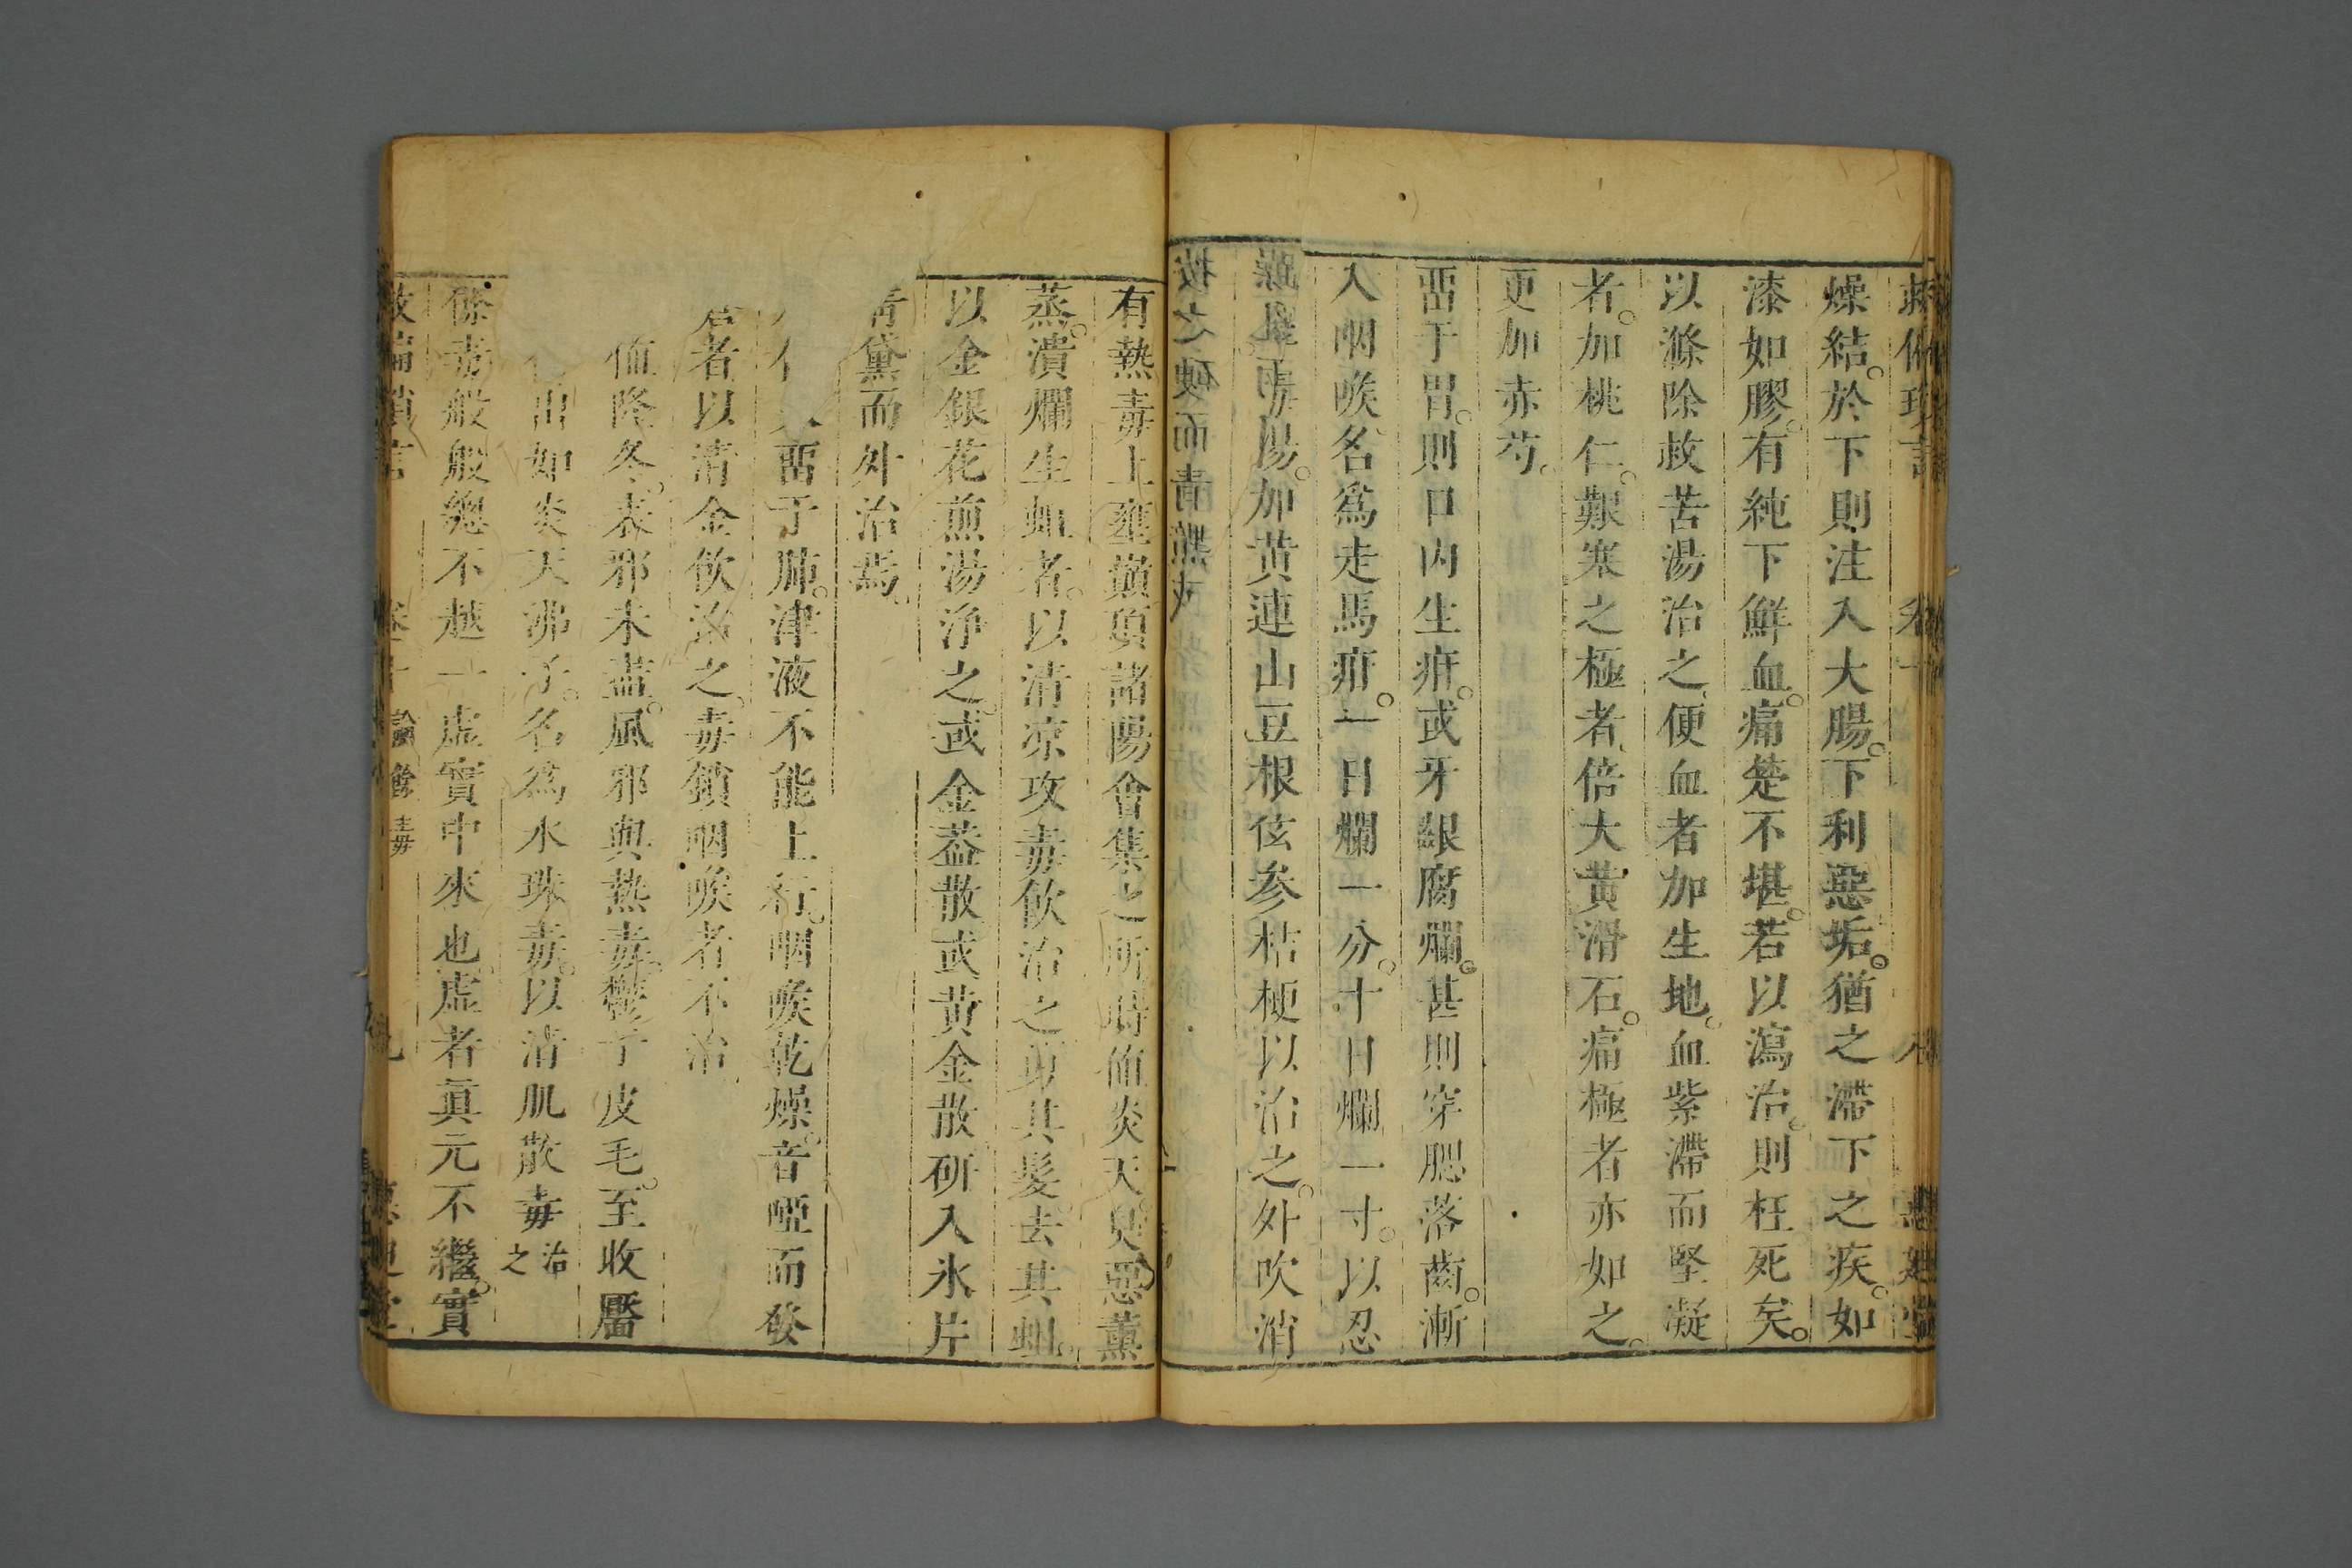 救偏瑣言
燥結。於下則注入大腸。下利惡垢。猶之滯下之疾。如
漆如膠。有純下鮮血。痛楚不堪。若以瀉治。則枉死矣。
以滌除救苦湯治之。便血者加生地。血紫滯而堅凝
者。加桃仁。艱寒之極者。倍大黃滑石。痛極者亦如之。
更加赤芍。
畱于胃。則口內生疳。或牙齦腐爛。甚則穿腮落齒。漸
入咽喉。名爲走馬疳。一日爛一分。十日爛一寸。以忍
加黃連山豆根弦參桔梗以治之。外吹消
有熱毒上壅巔頂諸陽會集之所。時値炎天。臭惡薰
蒸。潰爛生蛆者。以清凉攻毒飲治之。剪其髮。去其蛆。
以金銀花煎湯淨之。或金蓋散。或黃金散。研入氷片
青黛而外治焉。
畱于肺。津液不能上行。咽喉乾燥。音啞而發
者以清金飲治之。毒鎖咽喉者不治。
値隆冬。表邪未盡。風邪與熱毒。壅于皮毛。至收靨
出如炎天沸子。名爲水珠毒。以清肌散毒治之
餘毒般般總不越一虛實中來也。虛者眞元不繼。實
救偏瑣言 卷十 論餘毒 九